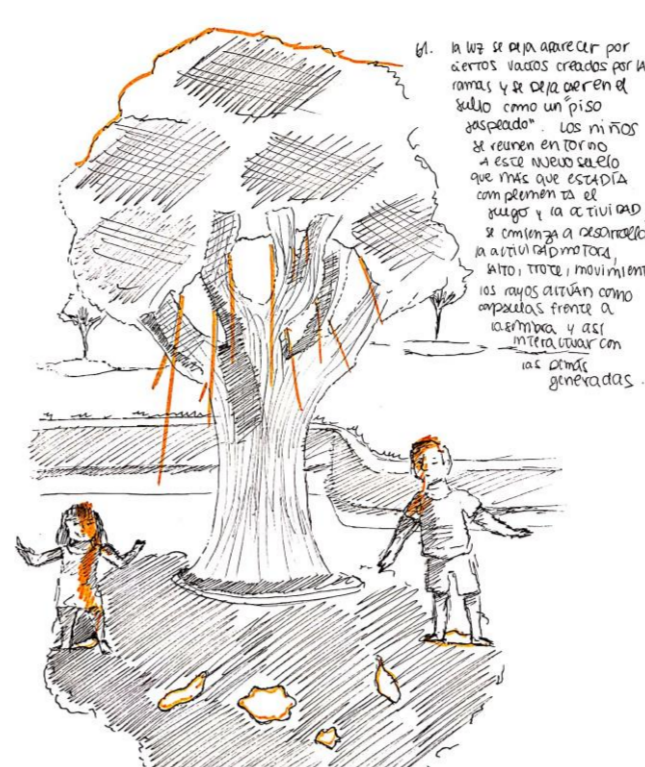 61. la luz se deja aparecer por
ciertos vacios creados por la
ramas y se deja caer en el
suelo como un "piso
jaspeado". Los niños
se reunen en torno
A este nuevo suelo
que más que ESTADÍA
complementa el
juego y la actividad
se comienza a desarrollo
la actividad motora,
salto, trote, movimient
los rayos actúan como
capsulas frente a
la sombra y así
interactuar con
las demás
generadas.